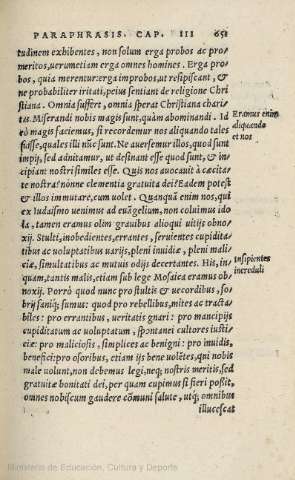 PARAPHRASIS. CAP. III 651
tudinem exhibentes, non solum erga probos ac pro/
meritos, uerumetiam erga omnes homines. Erga pro/
bos, quia merentur: erga improbos, ut resipiscant, &
ne probabiliter iritati, peius sentiant de religione Chri
stiana. Omnia suffert, omnia sperat Christiana chari/
tas. Miserandi nobis magis sunt, quàm abominandi. Id
Eramus enim
rò magis faciemus, si recordemur nos aliquando tales
aliquando
fuisse, quales illi nũc sunt. Ne auersemur illos, quòd sunt
et nos
impij, sed adnitamur, ut desinant esse quod sunt, & in/
cipiant nostri similes esse. Quis nos auocauit à cæcita/
te nostra? nonne clementia gratuita dei? Eadem potest
& illos immutare, cum uolet. Quanquã enim nos, qui
ex Iudaismo uenimus ad euãgelium, non coluimus ido
la, tamen eramus olim grauibus alioqui uitijs obno/
xij. Stulti, inobedientes, errantes, seruientes cupidita/
tibus ac uoluptatibus uarijs, pleni inuidiæ, pleni mali/
ciæ, simultatibus ac mutuis odijs decertantes. His, in/
Insipientes
increduli
quam, tantis malis, etiam sub lege Mosaica eramus ob
noxij. Porrò quòd nunc pro stultis & uecordibus, so/
brij saniq; sumus: quòd pro rebellibus, mites ac tracta/
biles: pro errantibus, ueritatis gnari: pro mancipijs
cupiditatum ac uoluptatum, spontanei cultores iusti/
ciæ: pro maliciosis, simplices ac benigni: pro inuidis,
benefici: pro osoribus, etiam ijs bene uolẽtes, qui nobis
male uolunt, non debemus legi, neq; nostris meritis, sed
gratuitæ bonitati dei, per quam cupimus si fieri possit,
omnes nobiscum gaudere cõmuni salute, utq; omnibus
illucescat
Ministerio de Educación, Cultura y Deporte